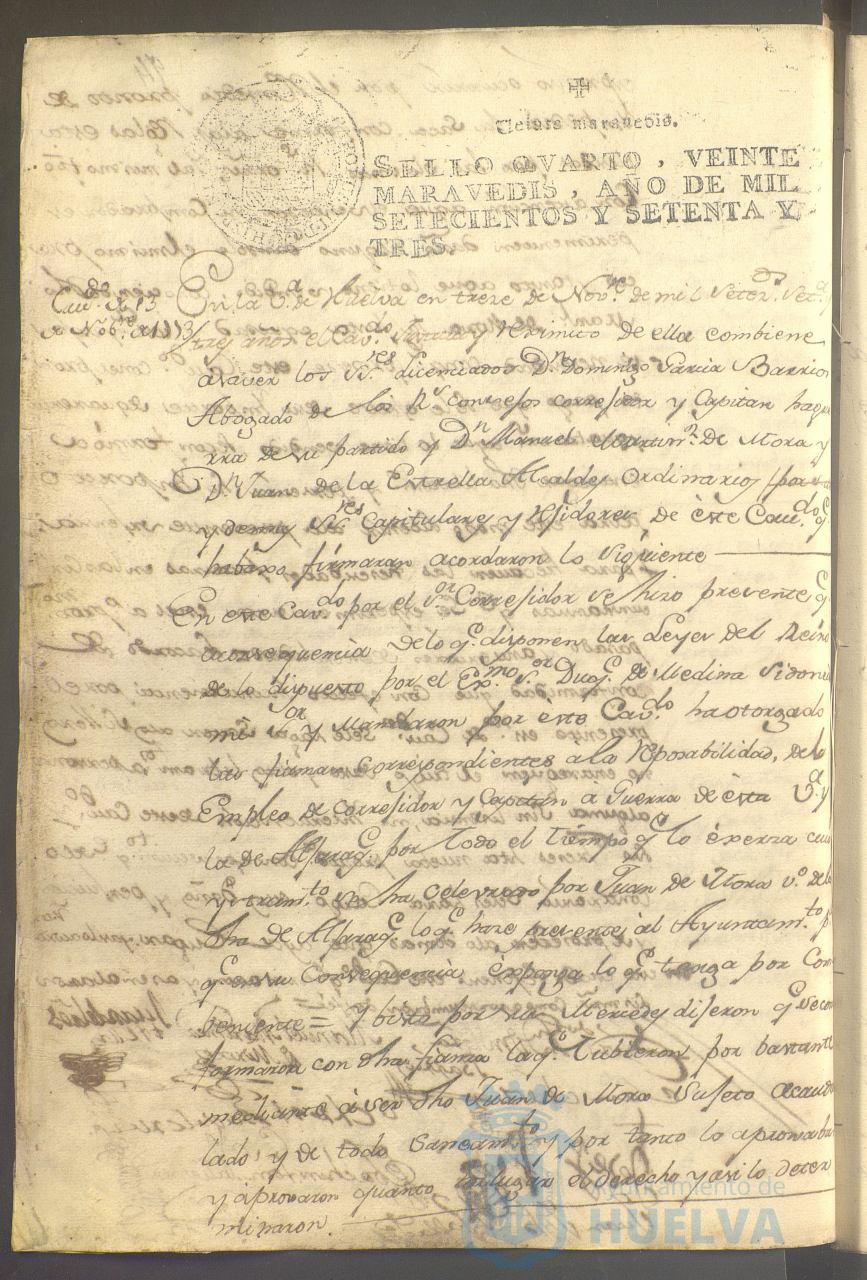 Veinte maravedis.
SELLO QVARTO, VEINTE
MARAVEDIS, AÑO DE MIL
SETECIENTOS Y SETENTA Y
TRES.
Cavdo. de 13
de Nobre. de 1773
En la Va. de Huelva en treze de Nove. de mil Setezs. Seta. y
tres años el Cavdo. Justicia y Reximto de ella combiene
a saver los SSres. Licenciados Dn. Domingo Garcia Barrios
Abogado de los Rs. consejos corregidor y Capitan ha gue
rra de su partido y Dn Manuel Martinz. De Mora y
Dn Juan de la Estrella Alcaldes Ordinarios
y demas SSres Capitulares y Rejidores de este Cavdo q.
habaxo firmaran acordaron lo siguiente
En este Cavdo por el Sor Corregidor se hizo presente q.
a consequencia de lo q. disponen las Leyes del Reino
de lo dispuesto por el Exmo Sor Duq. de Medina Sidonia
mi Sor y Mandaron por este Cavdo. ha otorgado
las fianzas correspondientes a la responsabilidad, de
Empleo de Corregidor y Capitan a Guerra de esta Va. y
la de Alfaraq. por todo el tiempo q. lo exerza
se ha Celevrado por Juan de Mora vo. de la
dha de Alfaraq. lo q. haze presente al Ayuntamto p.
q. en su Consequencia exponga lo q. tenga por Con
beniente = Y bisto por sus Mercedes dijeron q. se con
formaron con dha fianza la q. tubieron por bastante
mediante a ser dho Juan de Mora Sujeto acauda
lado y de todo Saneamto y por tanto lo aprovaban
y aprovaron quanto ha lugar el derecho y asi lo deter
minaron.
Ayuntamiento de
HUELVA